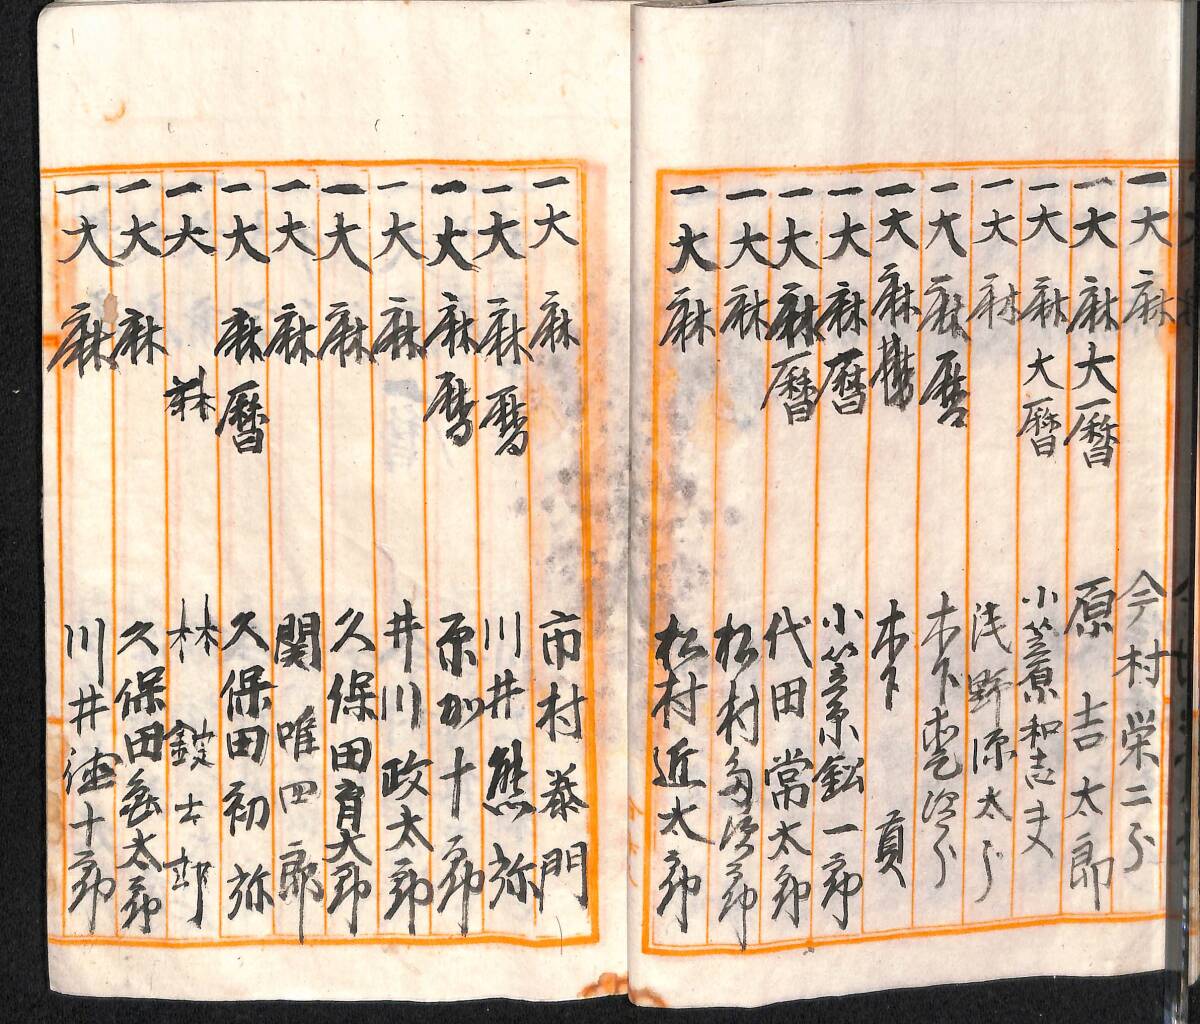 一大麻 今村栄二郎
一大麻大暦 原吉太郎
一大麻大暦 小笠原和志夫
一大麻 浅野源太郎
一大麻暦 木下
一大麻暦 木下 貢
一大麻暦 小笠原鉱一郎
一大麻暦 代田常太郎
一大麻 松村 治郎
一大麻 松村近太郎
一大麻 市村 門
一大麻暦 川井熊弥
一大麻暦 原加十郎
一大麻 井川政太郎
一大麻 久保田育太郎
一大麻 関唯四郎
一大麻暦 久保田初弥
一大麻 林錠士郎
一大麻 久保田 太郎
一大麻 川井徳十郎